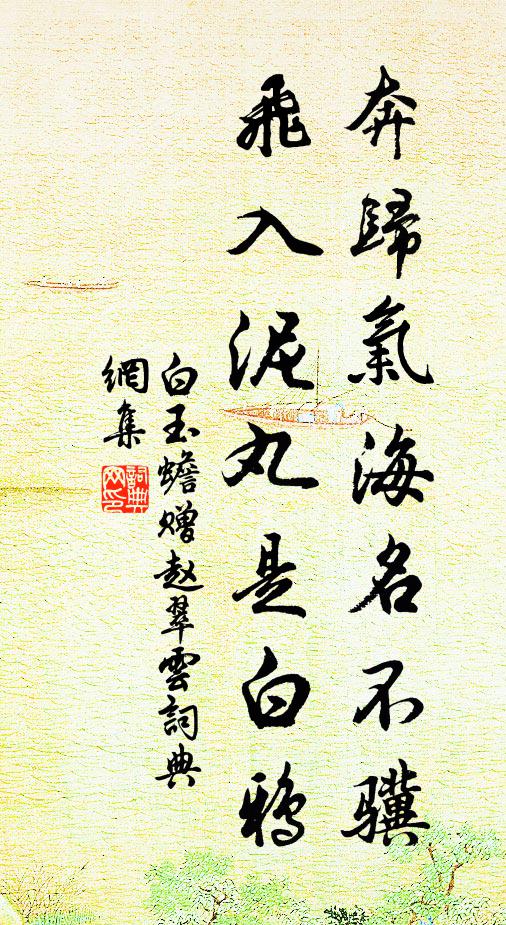 奔歸氣海名不驥
飛入泥丸是白鴉
白玉蟾赠赵翠雲詞典
網集
詞典
网印